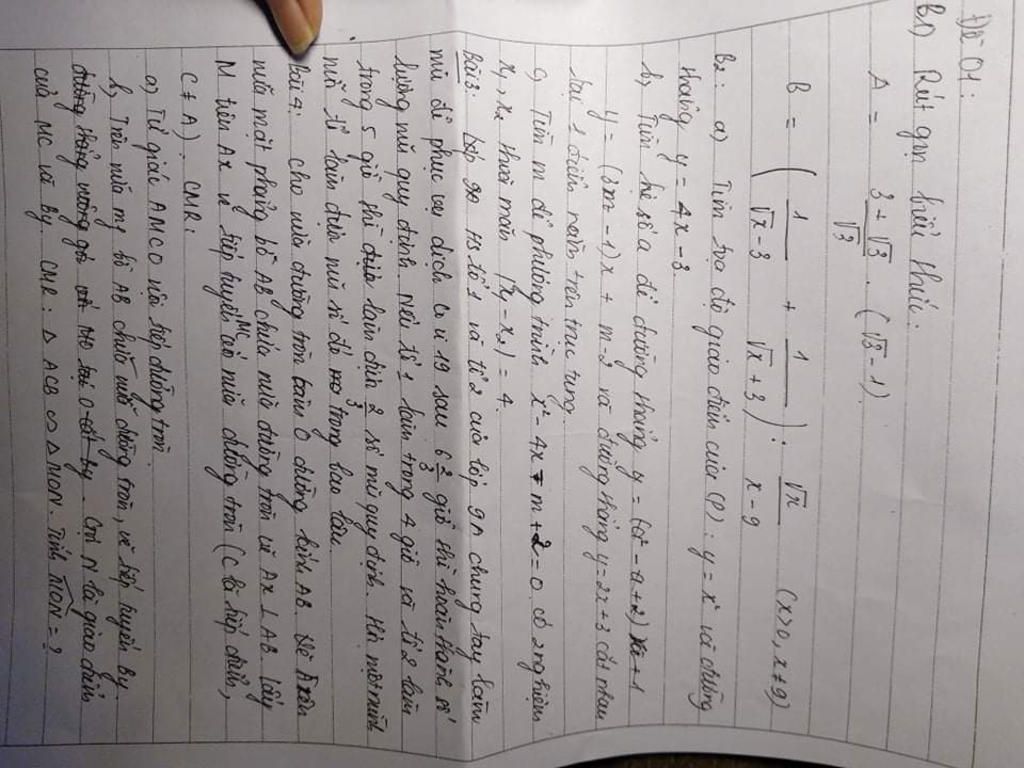 ĐB-01:
B1) Rút gọn biểu thức:
A = 3+√3 / √3 . (√3 - 1)
B = ( 1 / √x - 3 + 1 / √x + 3 ) : √x / x - 9 (x>0, x≠9)
B2: a) Tìm tọa độ giao điểm của (P): y = x² và đường
thẳng y = 4x - 3
b, Tìm hệ số a để đường thẳng y = (a² - a + 2)x + 1
y = (3m - 1)x + m - 2 và đường thẳng y = 2x + 3 cắt nhau
tại 1 điểm nằm trên trục tung.
c, Tìm m để phương trình x² - 4x - m + 2 = 0 có 2 nghiệm
x₁, x₂ thoả mãn |x₁ - x₂| = 4.
Bài 3: Lớp 90 HS tổ 1 và tổ 2 của lớp 9A chung tay làm
mũ để phục vụ dịch covid 19 sau 6 2/3 giờ thì hoàn thành số
lượng mũ quy định. Nếu tổ 1 làm trong 4 giờ và tổ 2 làm
trong 5 giờ thì làm được 2/3 số mũ quy định. Hỏi mỗi mình
mỗi tổ làm được mũ số đó trong bao lâu.
Bài 4: Cho nửa đường tròn tâm O đường kính AB. Vẽ
nửa mặt phẳng bờ AB chứa nửa đường tròn vẽ Ax ⊥ AB. Lấy
M trên Ax vẽ tiếp tuyến MC với nửa đường tròn (C là tiếp điểm,
C ≠ A). CMR:
a, Tứ giác AMCO nội tiếp đường tròn.
b, Trên nửa mp bờ AB chứa nửa đường tròn, vẽ tiếp tuyến By
đường thẳng vuông góc với MO tại O cắt By. Gọi N là giao điểm
của MC và By. CMR: Δ ACB ∽ Δ MON. Tính MON = ?